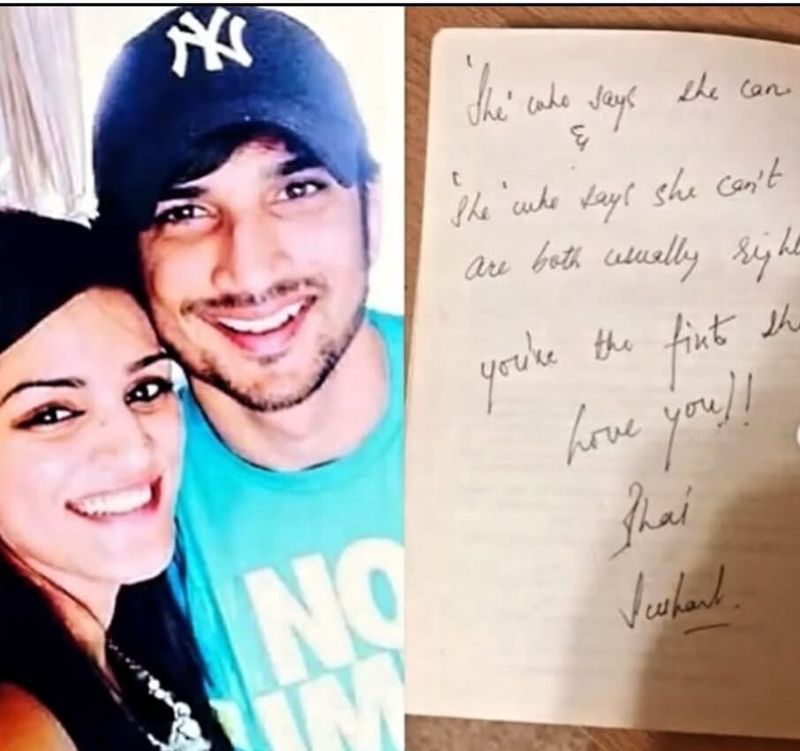 NY
NO
LIM
'She' who says she can
&
'She' who says she can't
are both usually right
you're the first
Love you!!
Bhai
Sushant.